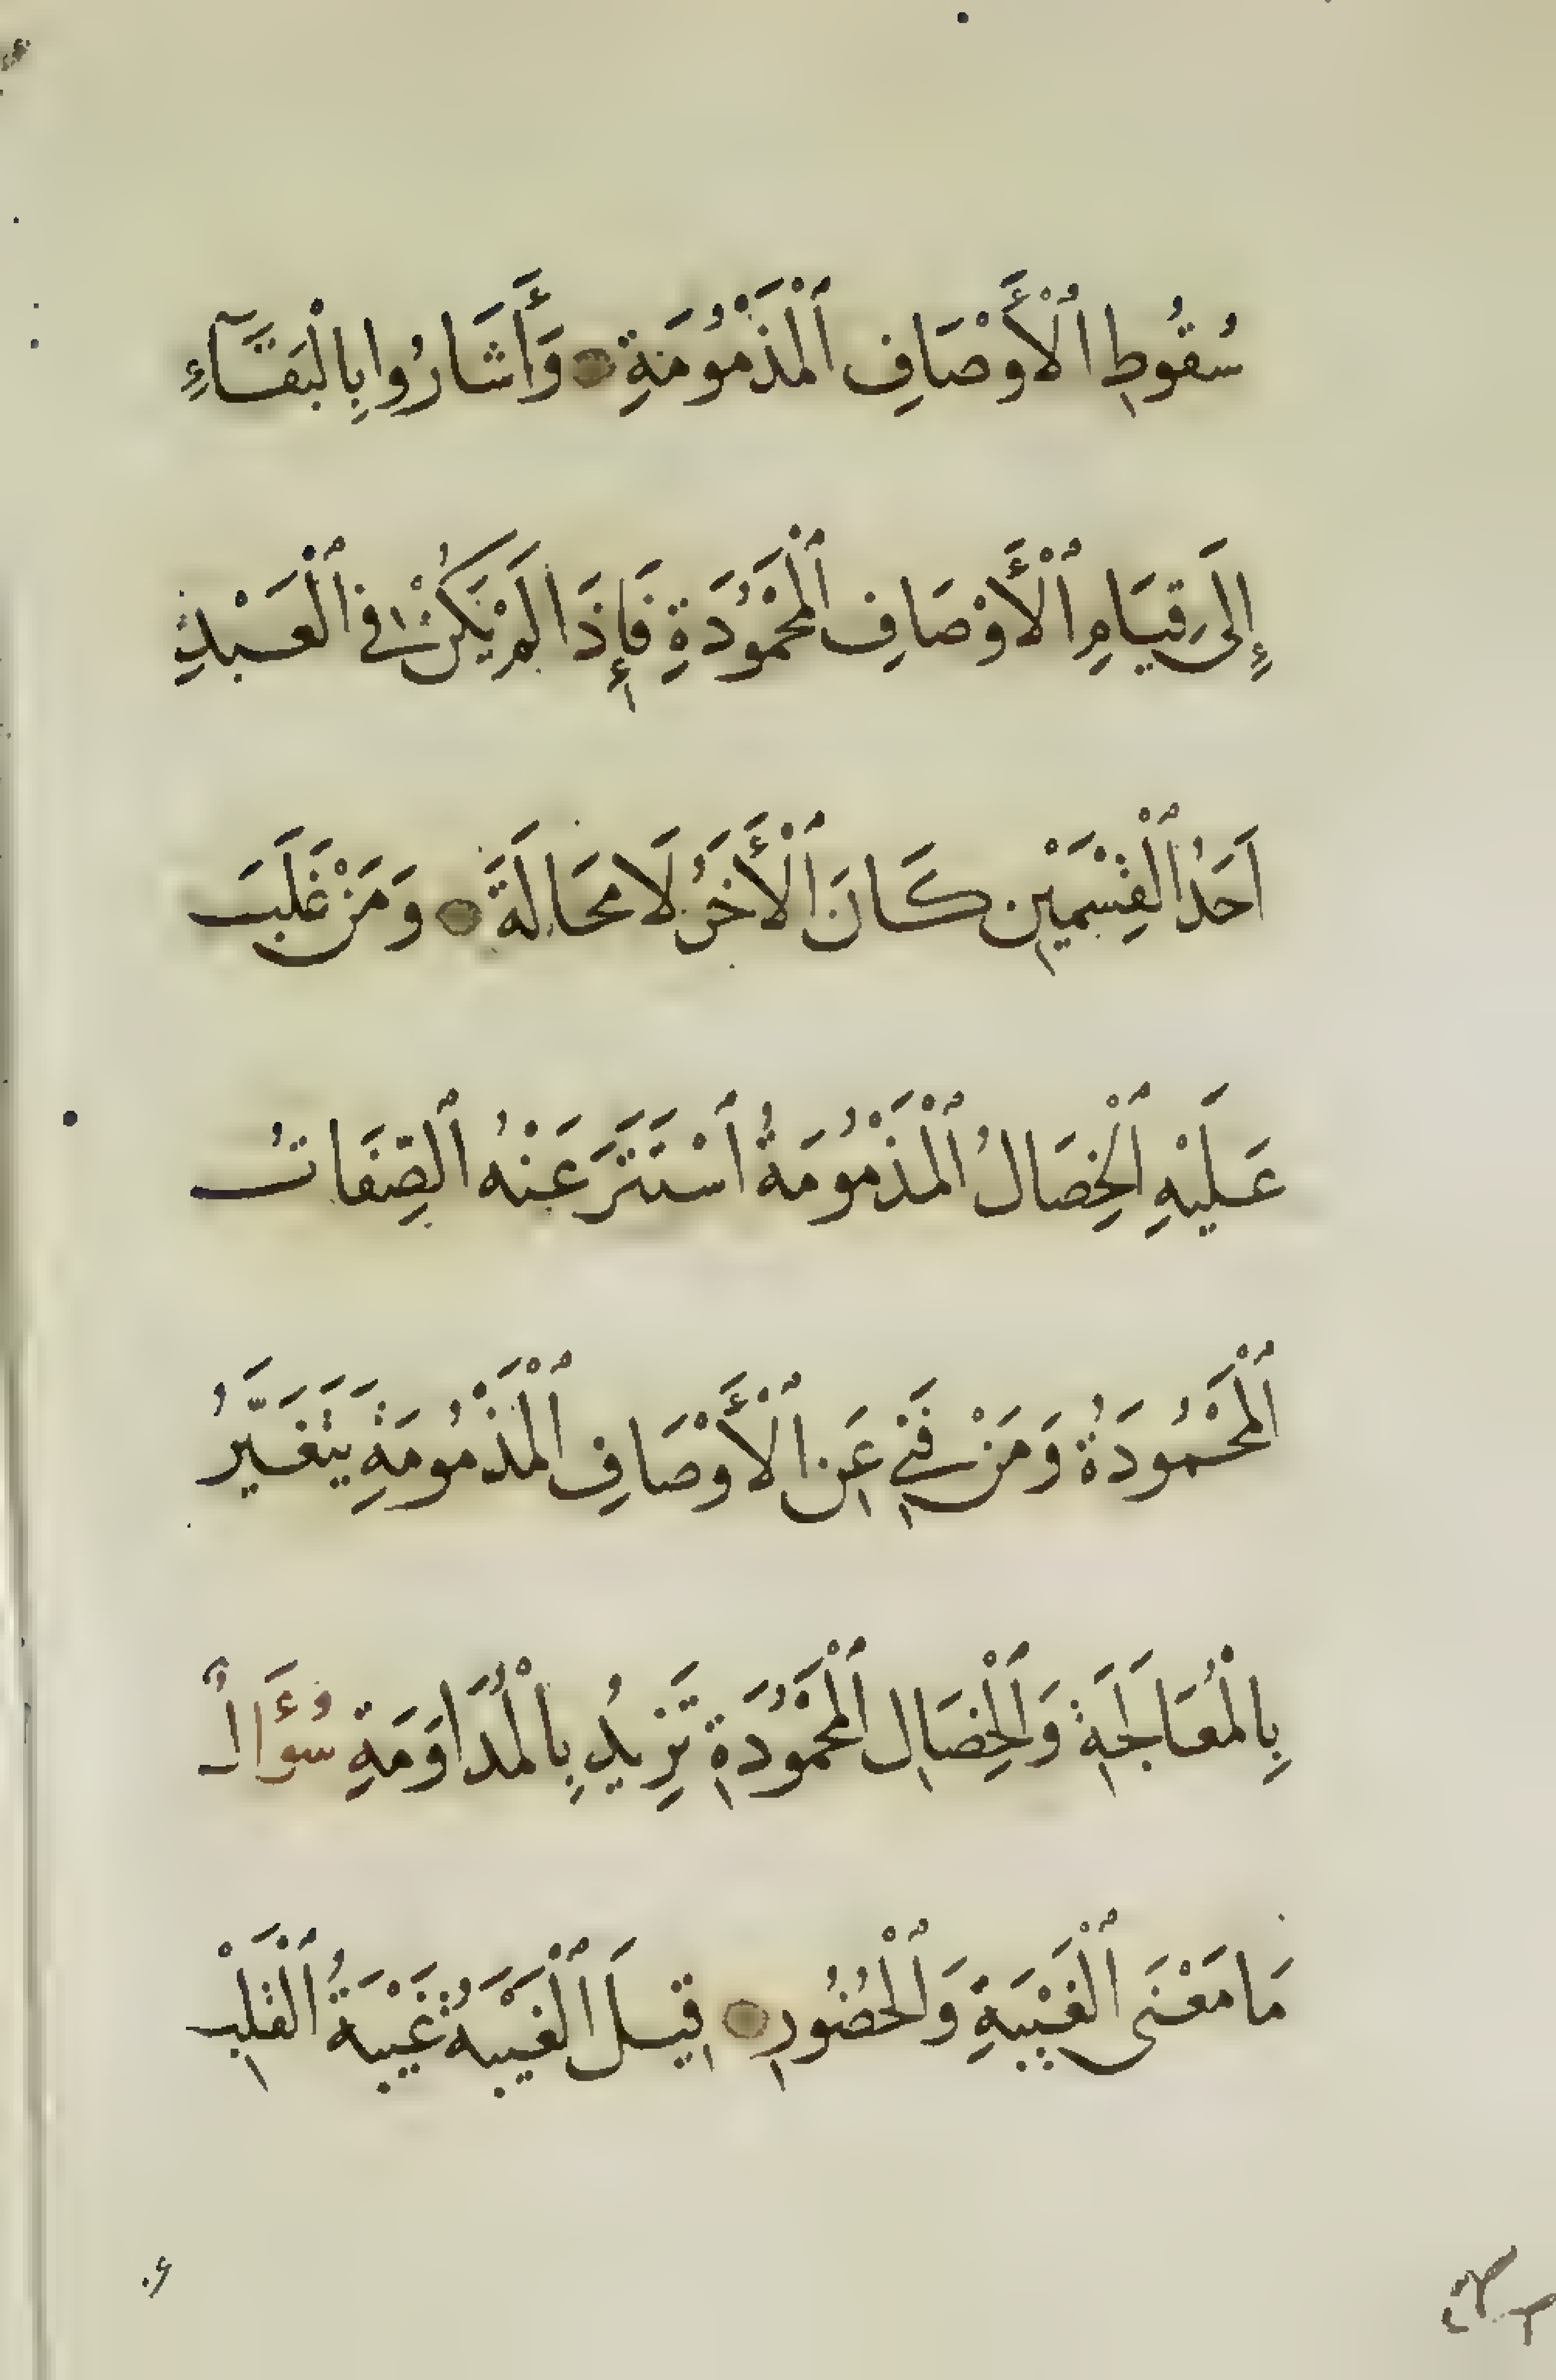 سُقُوطِ ٱلْأَوْصَافِ ٱلْمَذْمُومَةِ وَأَشَارُوا بِالْبَقَآءِ
إِلَى قِيَامِ ٱلْأَوْصَافِ ٱلْمَحْمُودَةِ فَإِذَا لَمْ يَكُنْ فِي ٱلْعَبْدِ
اَحَدُ ٱلْقِسْمَيْنِ كَانَ ٱلْأَخَرُ لَا مَحَالَةَ وَمَنْ غَلَبَ
عَلَيْهِ ٱلْخِصَالُ ٱلْمَذْمُومَةُ ٱسْتَتَرَ عَنْهُ ٱلصِّفَاتُ
ٱلْمَحْمُودَةُ وَمَنْ فَنِيَ عَنِ ٱلْأَوْصَافِ ٱلْمَذْمُومَةِ يَتَغَيَّرُ
بِالْمُعَالَجَةِ وَٱلْخِصَالِ ٱلْمَحْمُودَةِ تَزِيدُ بِالْمُدَاوَمَةِ سُؤَالٌ
مَا مَعْنَى ٱلْغَيْبَةِ وَٱلْحُضُورِ قِيلَ ٱلْغَيْبَةُ غَيْبَةُ ٱلْقَلْبِ